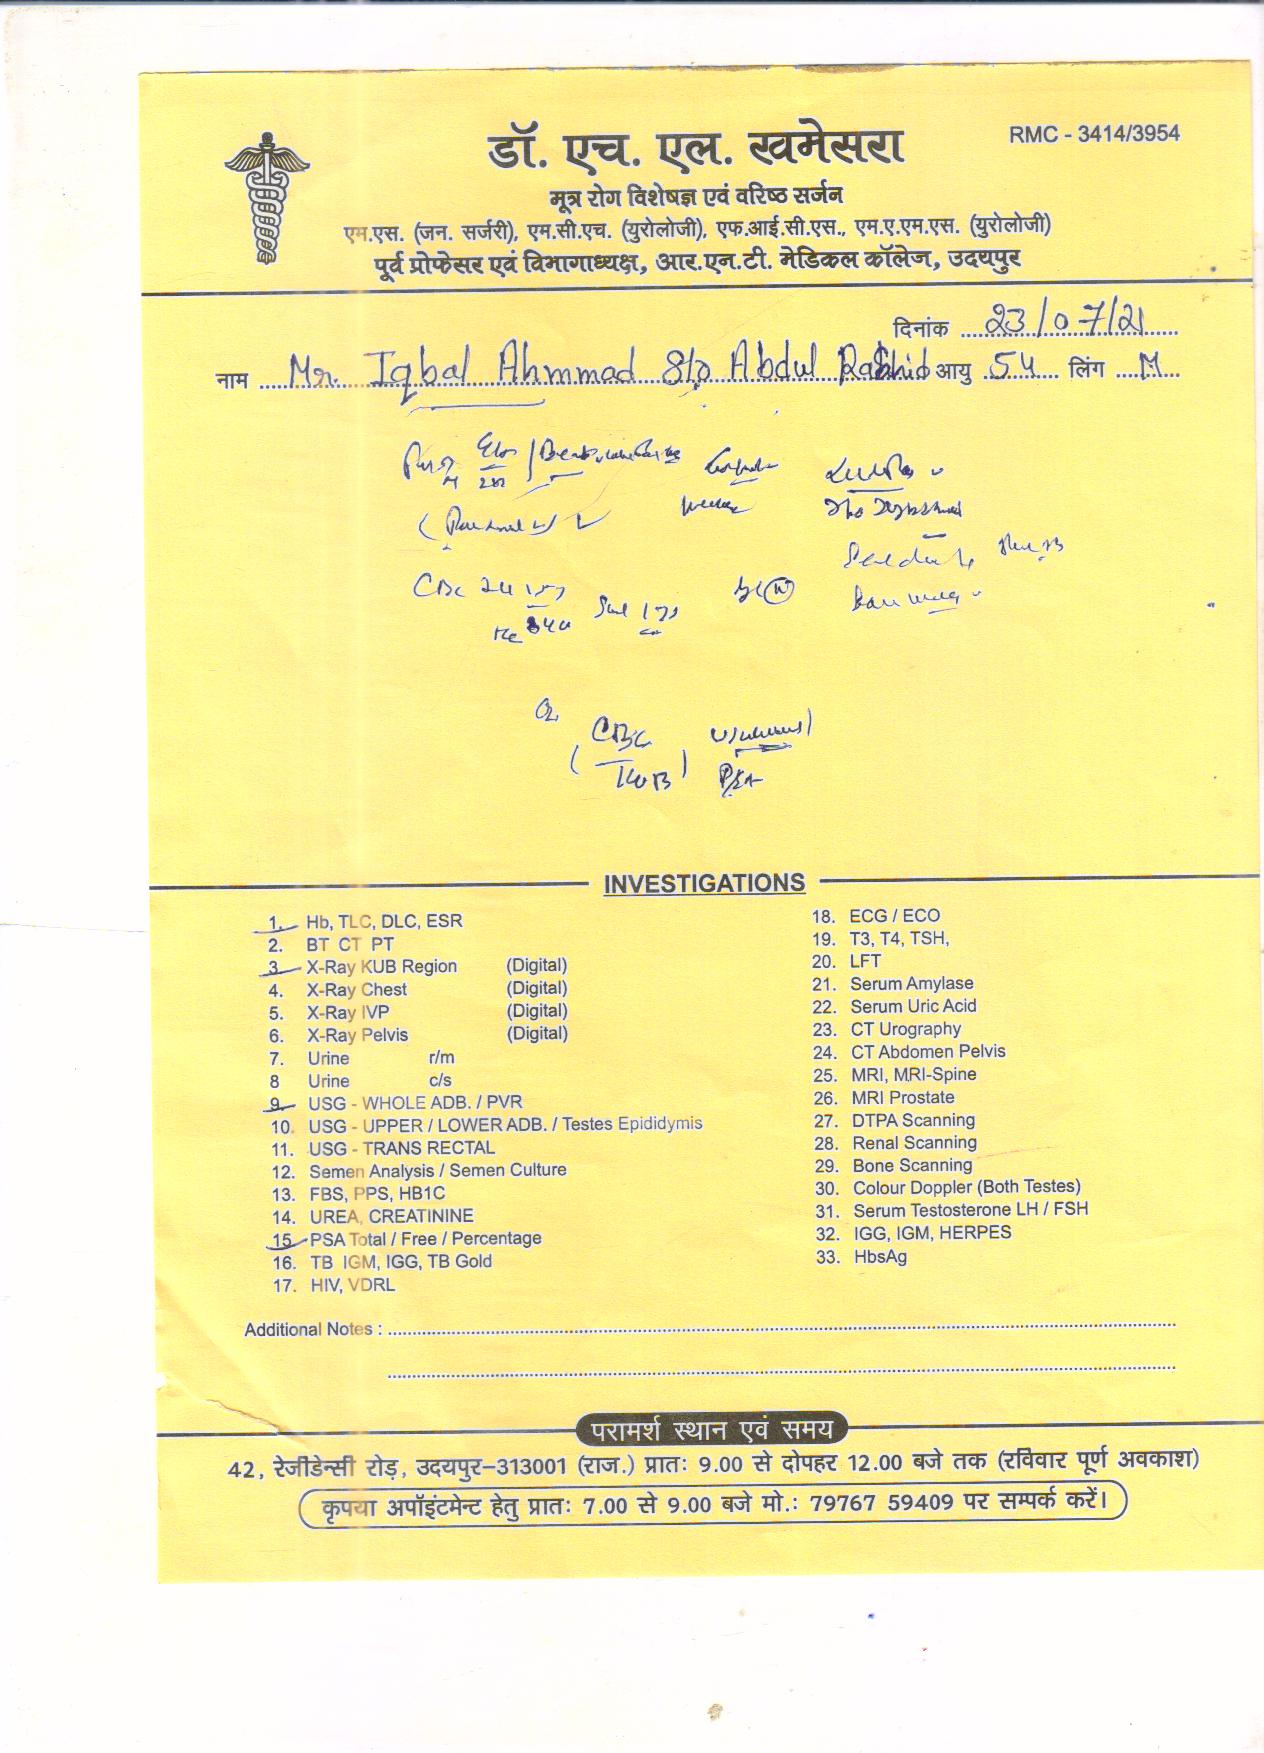 डॉ. एच. एल. खमेसरा
RMC - 3414/3954
मूत्र रोग विशेषज्ञ एवं वरिष्ठ सर्जन
एम.एस. (जन. सर्जरी), एम.सी.एच. (युरोलोजी), एफ.आई.सी.एस., एम.ए.एम.एस. (युरोलोजी)
पूर्व प्रोफेसर एवं विभागाध्यक्ष, आर.एन.टी. मेडिकल कॉलेज, उदयपुर
दिनांक 23/07/21
नाम Mr. Iqbal Ahmmad S/o Abdul Rashid आयु 54 लिंग M
CBC
CBC
KUB
PSA
INVESTIGATIONS
1. Hb, TLC, DLC, ESR
2. BT CT PT
3. X-Ray KUB Region (Digital)
4. X-Ray Chest (Digital)
5. X-Ray IVP (Digital)
6. X-Ray Pelvis (Digital)
7. Urine r/m
8 Urine c/s
9. USG - WHOLE ADB. / PVR
10. USG - UPPER / LOWER ADB. / Testes Epididymis
11. USG - TRANS RECTAL
12. Semen Analysis / Semen Culture
13. FBS, PPS, HB1C
14. UREA, CREATININE
15. PSA Total / Free / Percentage
16. TB IGM, IGG, TB Gold
17. HIV, VDRL
18. ECG / ECO
19. T3, T4, TSH,
20. LFT
21. Serum Amylase
22. Serum Uric Acid
23. CT Urography
24. CT Abdomen Pelvis
25. MRI, MRI-Spine
26. MRI Prostate
27. DTPA Scanning
28. Renal Scanning
29. Bone Scanning
30. Colour Doppler (Both Testes)
31. Serum Testosterone LH / FSH
32. IGG, IGM, HERPES
33. HbsAg
Additional Notes :
परामर्श स्थान एवं समय
42, रेजीडेन्सी रोड़, उदयपुर-313001 (राज.) प्रातः 9.00 से दोपहर 12.00 बजे तक (रविवार पूर्ण अवकाश)
कृपया अपॉइंटमेन्ट हेतु प्रातः 7.00 से 9.00 बजे मो.: 79767 59409 पर सम्पर्क करें।